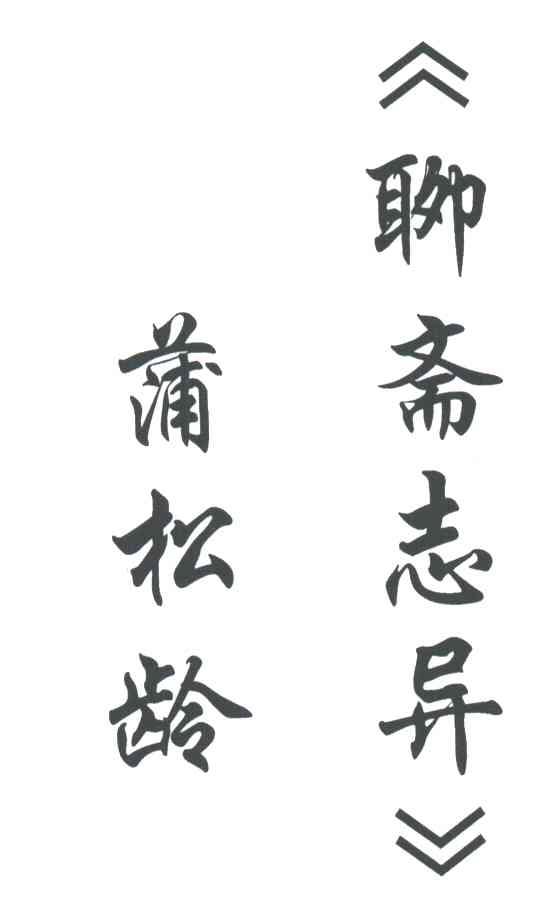 《聊斋志异》
蒲松龄